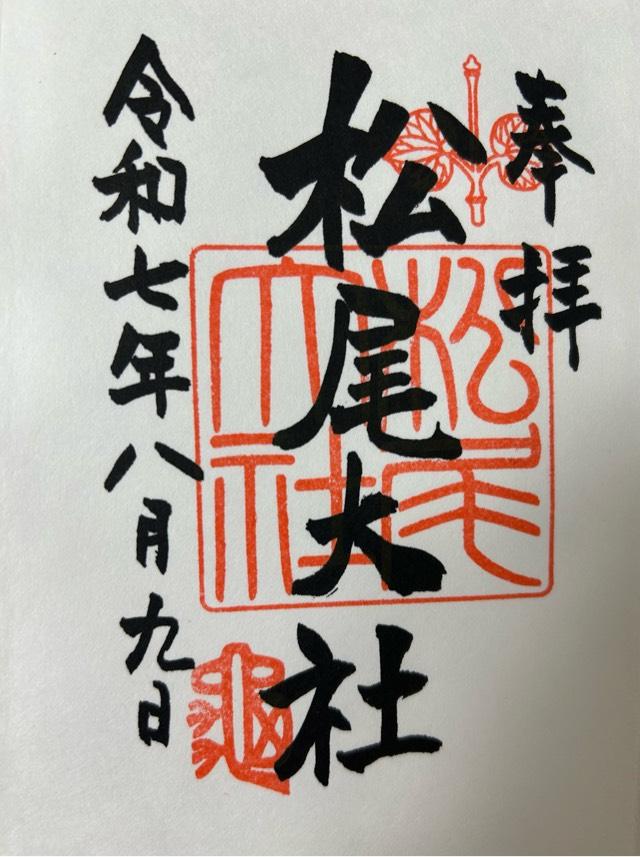 奉拝
松尾大社
松尾大社
令和七年八月九日
龜